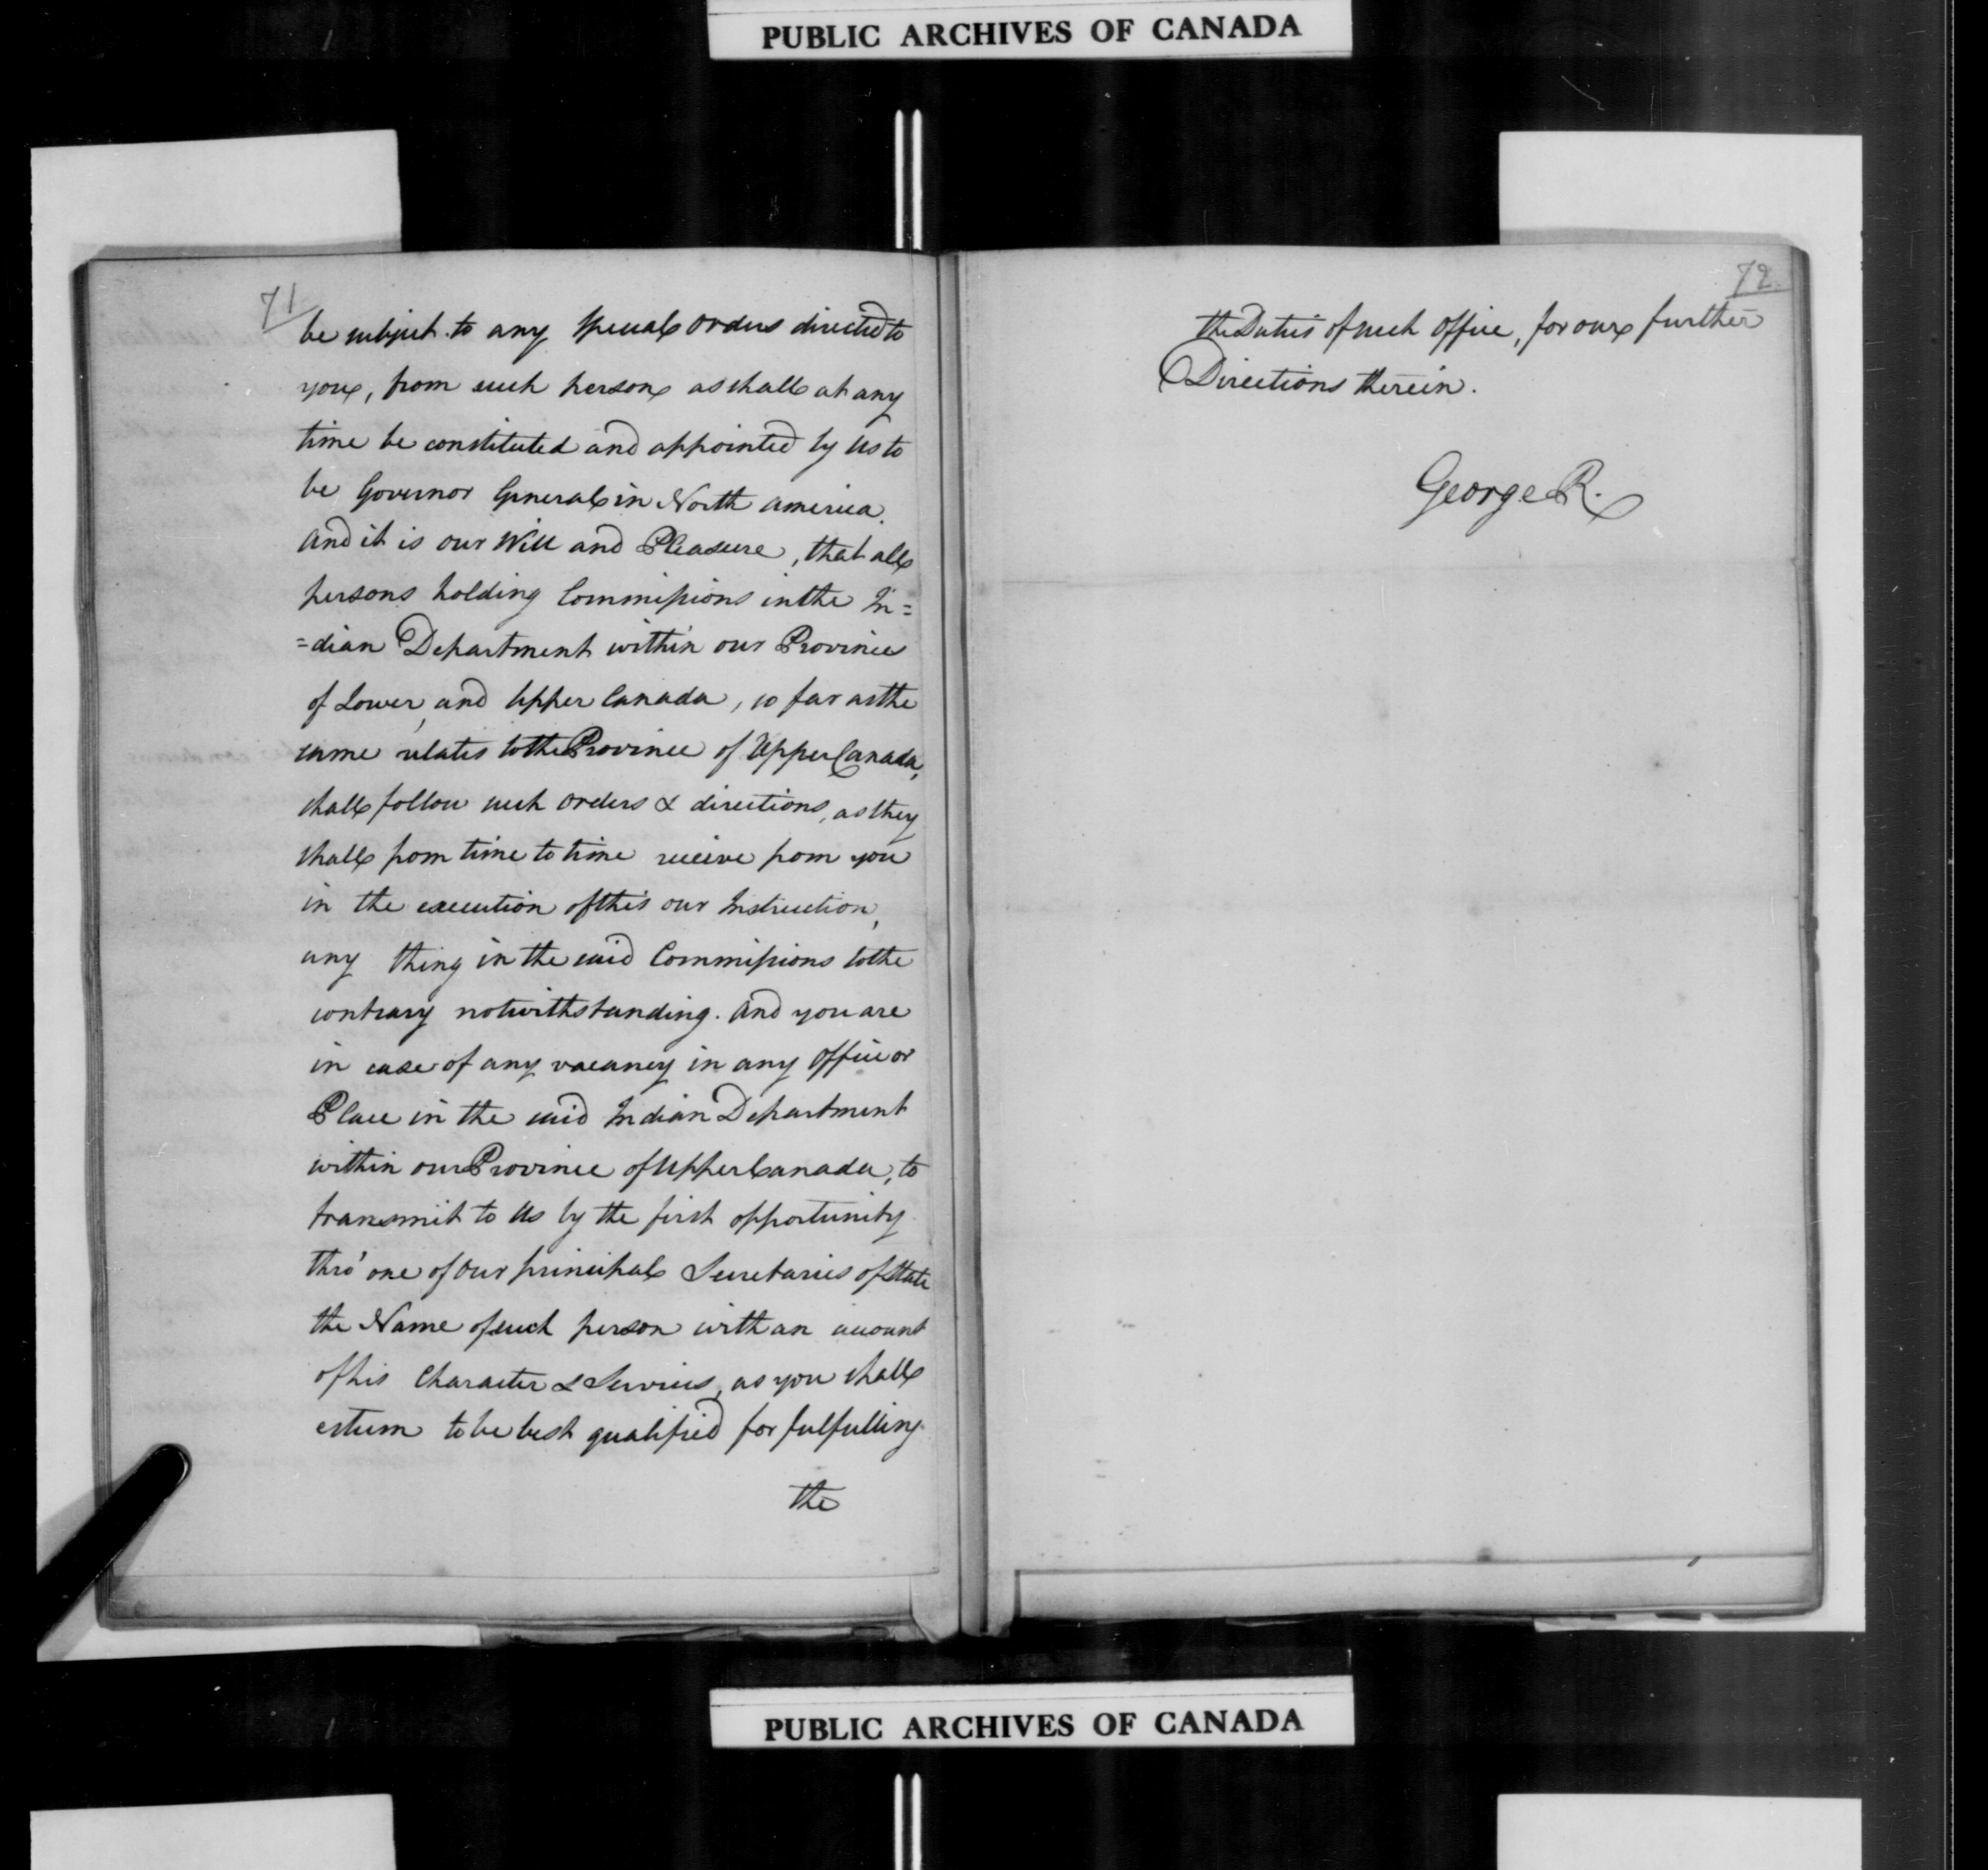 PUBLIC ARCHIVES OF CANADA
71
be subject to any special orders directed to
you, from such person as shall at any
time be constituted and appointed by Us to
be Governor General in North america.
And it is our Will and Pleasure, that all
persons holding Commissions in the In=
=dian Department within our Provinces
of Lower and Upper Canada, so far as the
same relates to the Province of Upper Canada,
shall follow such orders & directions, as they
shall from time to time receive from you
in the execution of this our Instruction,
any thing in the said Commissions to the
contrary notwithstanding. And you are
in case of any vacancy in any office or
Place in the said Indian Department
within our Province of Upper Canada, to
transmit to Us by the first opportunity
thro' one of our principal Secretaries of State
the Name of such person with an account
of his Character & Services, as you shall
esteem to be best qualified for fulfulling
the
72.
the Duties of such Office, for our further
Directions therein.
George R.
PUBLIC ARCHIVES OF CANADA